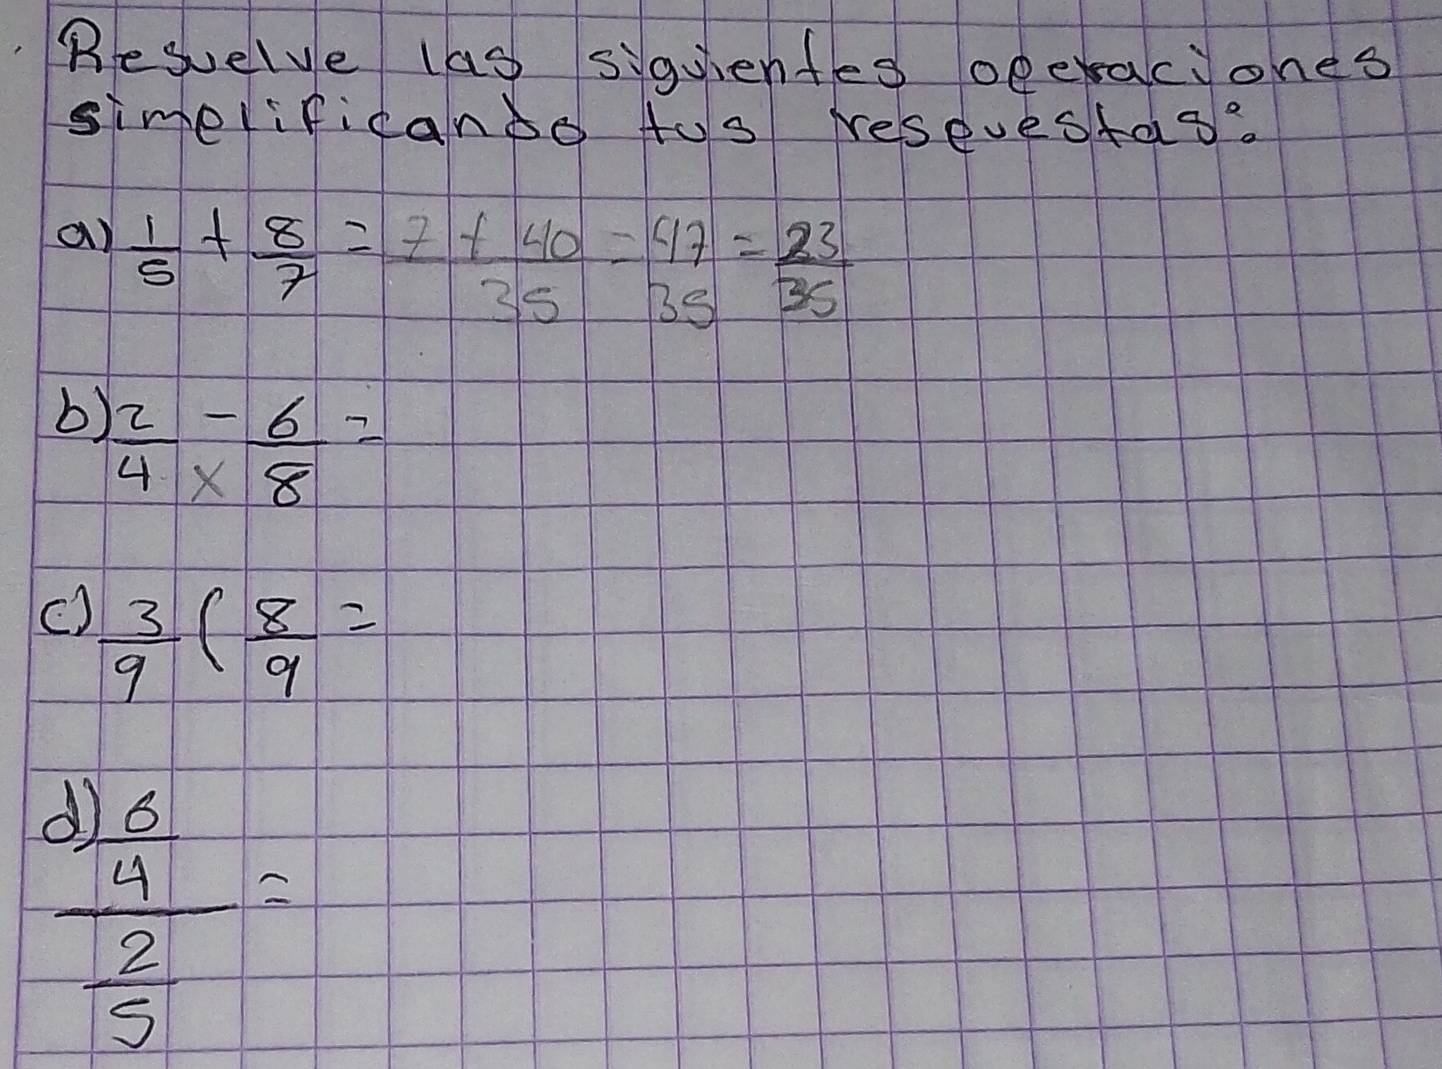 Resuelve las siguientes operaciones
simplificando tus respuestas:
a) 1/5 + 8/7 = 7 + 40/35 = 47/35 = 23/35
b) 2/4 - 6/8 =
x
c) 3/9 ( 8/9 =
d) 6/4 / 2/5 =